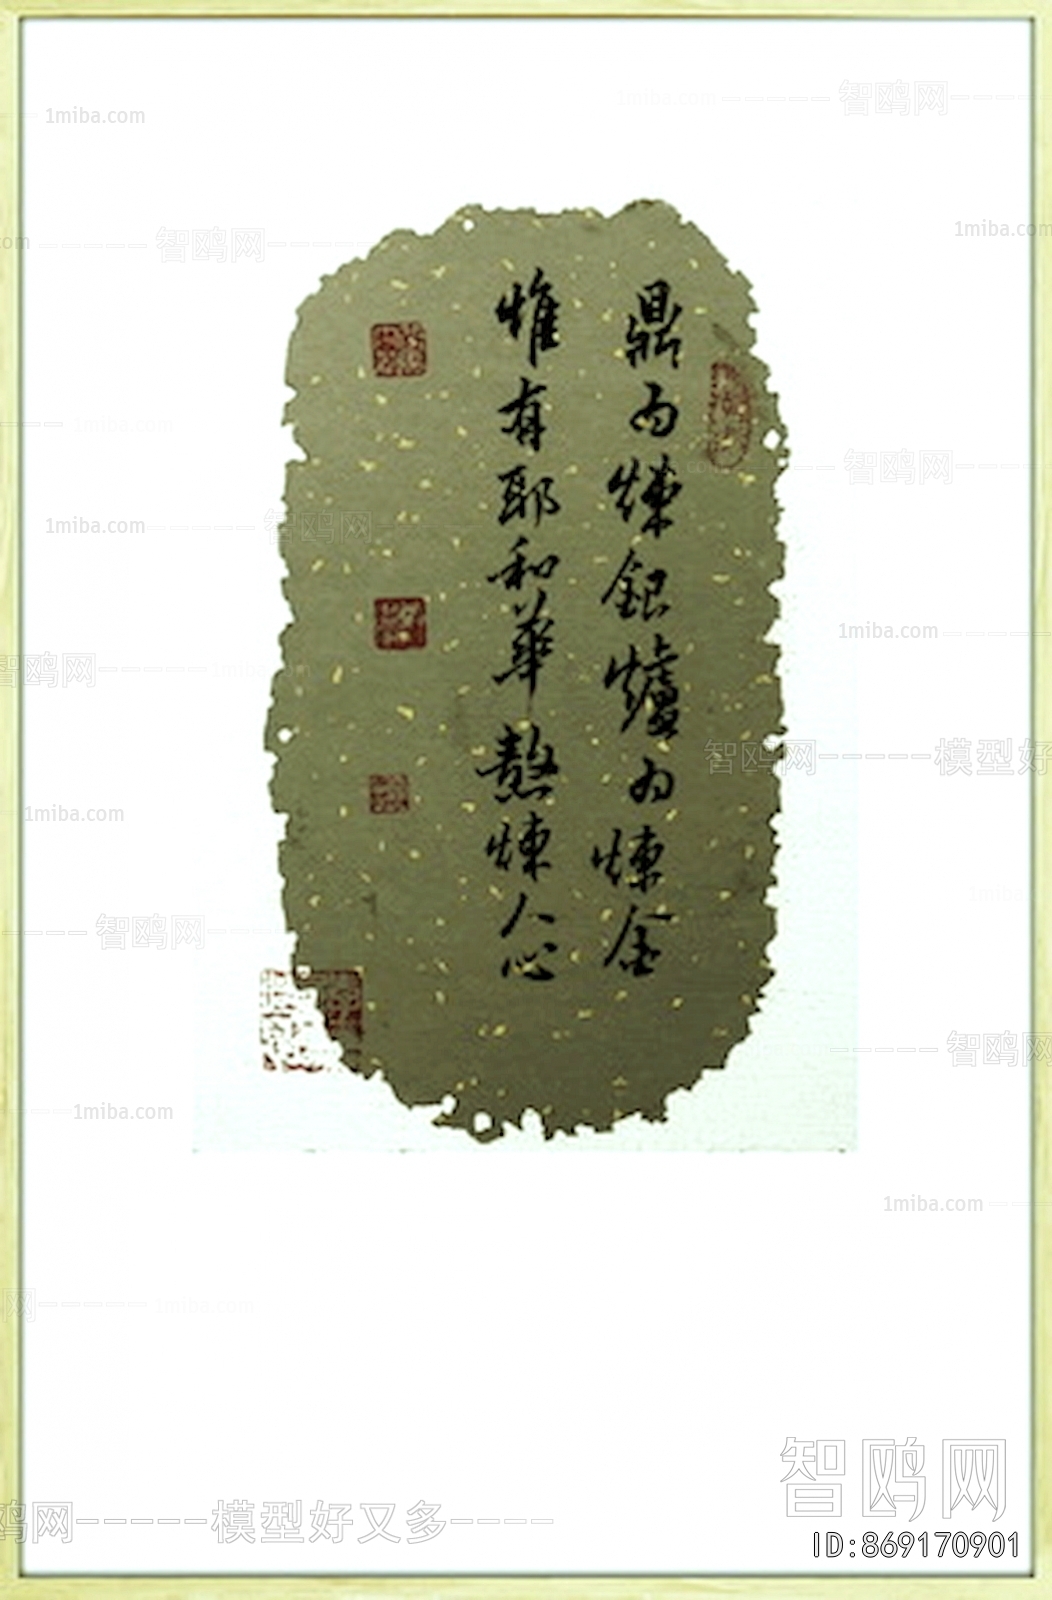 鼎为煉銀爐为煉金
惟有耶和華熬煉人心
1miba.com
智鸥网
智鸥网
1miba.com
1miba.com
1miba.com
智鸥网
1miba.com
智鸥网
1miba.com
智鸥网
1miba.com
智鸥网-----模型好
1miba.com
1miba.com
智鸥网
智鸥网
1miba.com
1miba.com
1miba.com
智鸥网
鸥网-----模型好又多----
ID:869170901